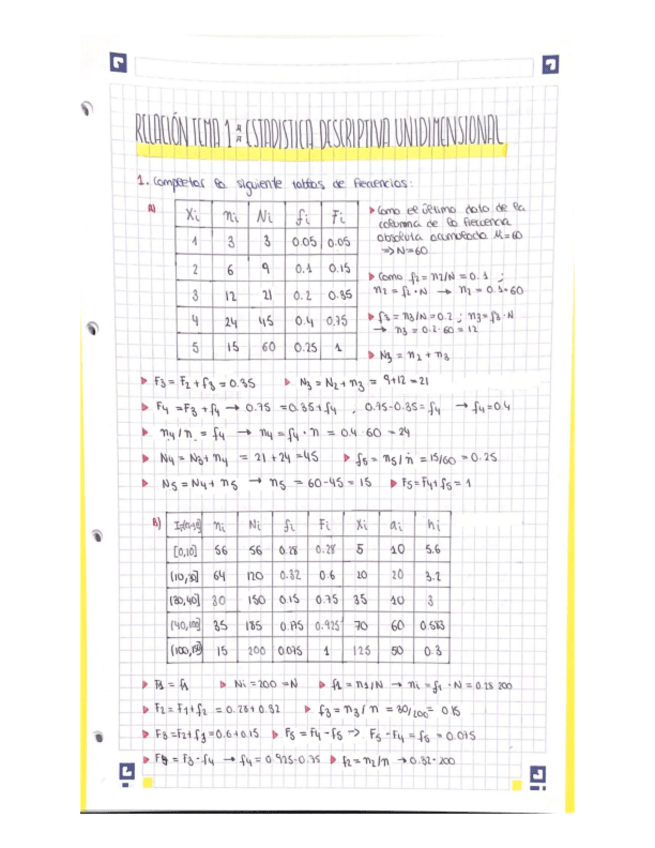 RELACIÓN TEMA 1: ESTADISTICA DESCRIPTIVA UNIDIMENSIONAL
1. Completar la siguiente tablas de frecuencias:
A)
Xi ni Ni fi Fi
1 3 3 0.05 0.05
2 6 9 0.1 0.15
3 12 21 0.2 0.35
4 24 45 0.4 0.75
5 15 60 0.25 1
Como el último dato de la
columna de la frecuencia
absoluta acumulada N=60
=> N=60
Como f2 = n2/N = 0.1 ;
n2 = f2·N → n2 = 0.1·60
f3 = n3/N = 0.2 ; n3 = f3·N
→ n3 = 0.2·60 = 12
N3 = n2 + n3
F3 = F2 + f3 = 0.35 N3 = N2 + n3 = 9+12 = 21
F4 = F3 + f4 → 0.75 = 0.35 + f4 , 0.75-0.35 = f4 → f4 = 0.4
n4/n = f4 → n4 = f4 · n = 0.4 · 60 = 24
N4 = N3 + n4 = 21 + 24 = 45 f5 = n5/n = 15/60 = 0.25
N5 = N4 + n5 → n5 = 60-45 = 15 F5 = F4 + f5 = 1
B)
ni Ni fi Fi Xi ai hi
[0,10] 56 56 0.28 0.28 5 10 5.6
(10,30] 64 120 0.32 0.6 20 20 3.2
(30,40] 30 150 0.15 0.75 35 10 3
(40,100] 35 185 0.175 0.925 70 60 0.583
(100,150] 15 200 0.075 1 125 50 0.3
F1 = f1 Ni = 200 = N f1 = n1/N → ni = f1 · N = 0.28·200
F2 = F1 + f2 = 0.28 + 0.32 f3 = n3/n = 30/200 = 0.15
F3 = F2 + f3 = 0.6 + 0.15 F5 = F4 - f5 => F5 - F4 = f5 = 0.075
F4 = F3 - f4 → f4 = 0.925-0.75 f2 = n2/n → 0.32·200